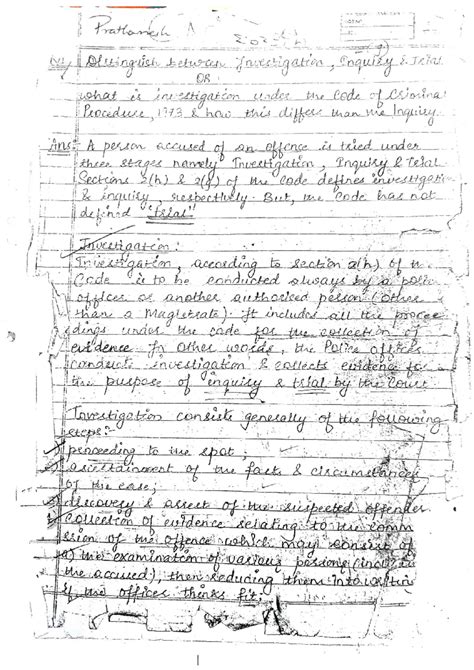 Prathamesh
Distinguish between Investigation, Inquiry & Trial
OR
what is investigation under the Code of Criminal
Procedure, 1973 & how this differs than the Inquiry
Ans:- A person accused of an offence is tried under
three stages namely Investigation, Inquiry & Trial
Sections 2(h) & 2(g) of the Code defines investigation
& inquiry, respectively. But, the Code has not
defined 'trial'
Investigation:
Investigation, according to section 2(h) of the
Code is to be conducted always by a police
officer or another authorised person (other
than a Magistrate). It includes all the procee
dings under the code for the collection of
evidence. In other words, the Police officer
conducts investigation & collects evidence for
the purpose of inquiry & trial by the Court
Investigation consists generally of the following
steps:-
proceeding to the spot;
ascertainment of the facts & circumstances
of the case;
discovery & arrest of the suspected offender
collection of evidence relating to the comm
ission of the offence which may consist of
a) the examination of various persons (including
the accused), then reducing them into writing
if the officer thinks fit.